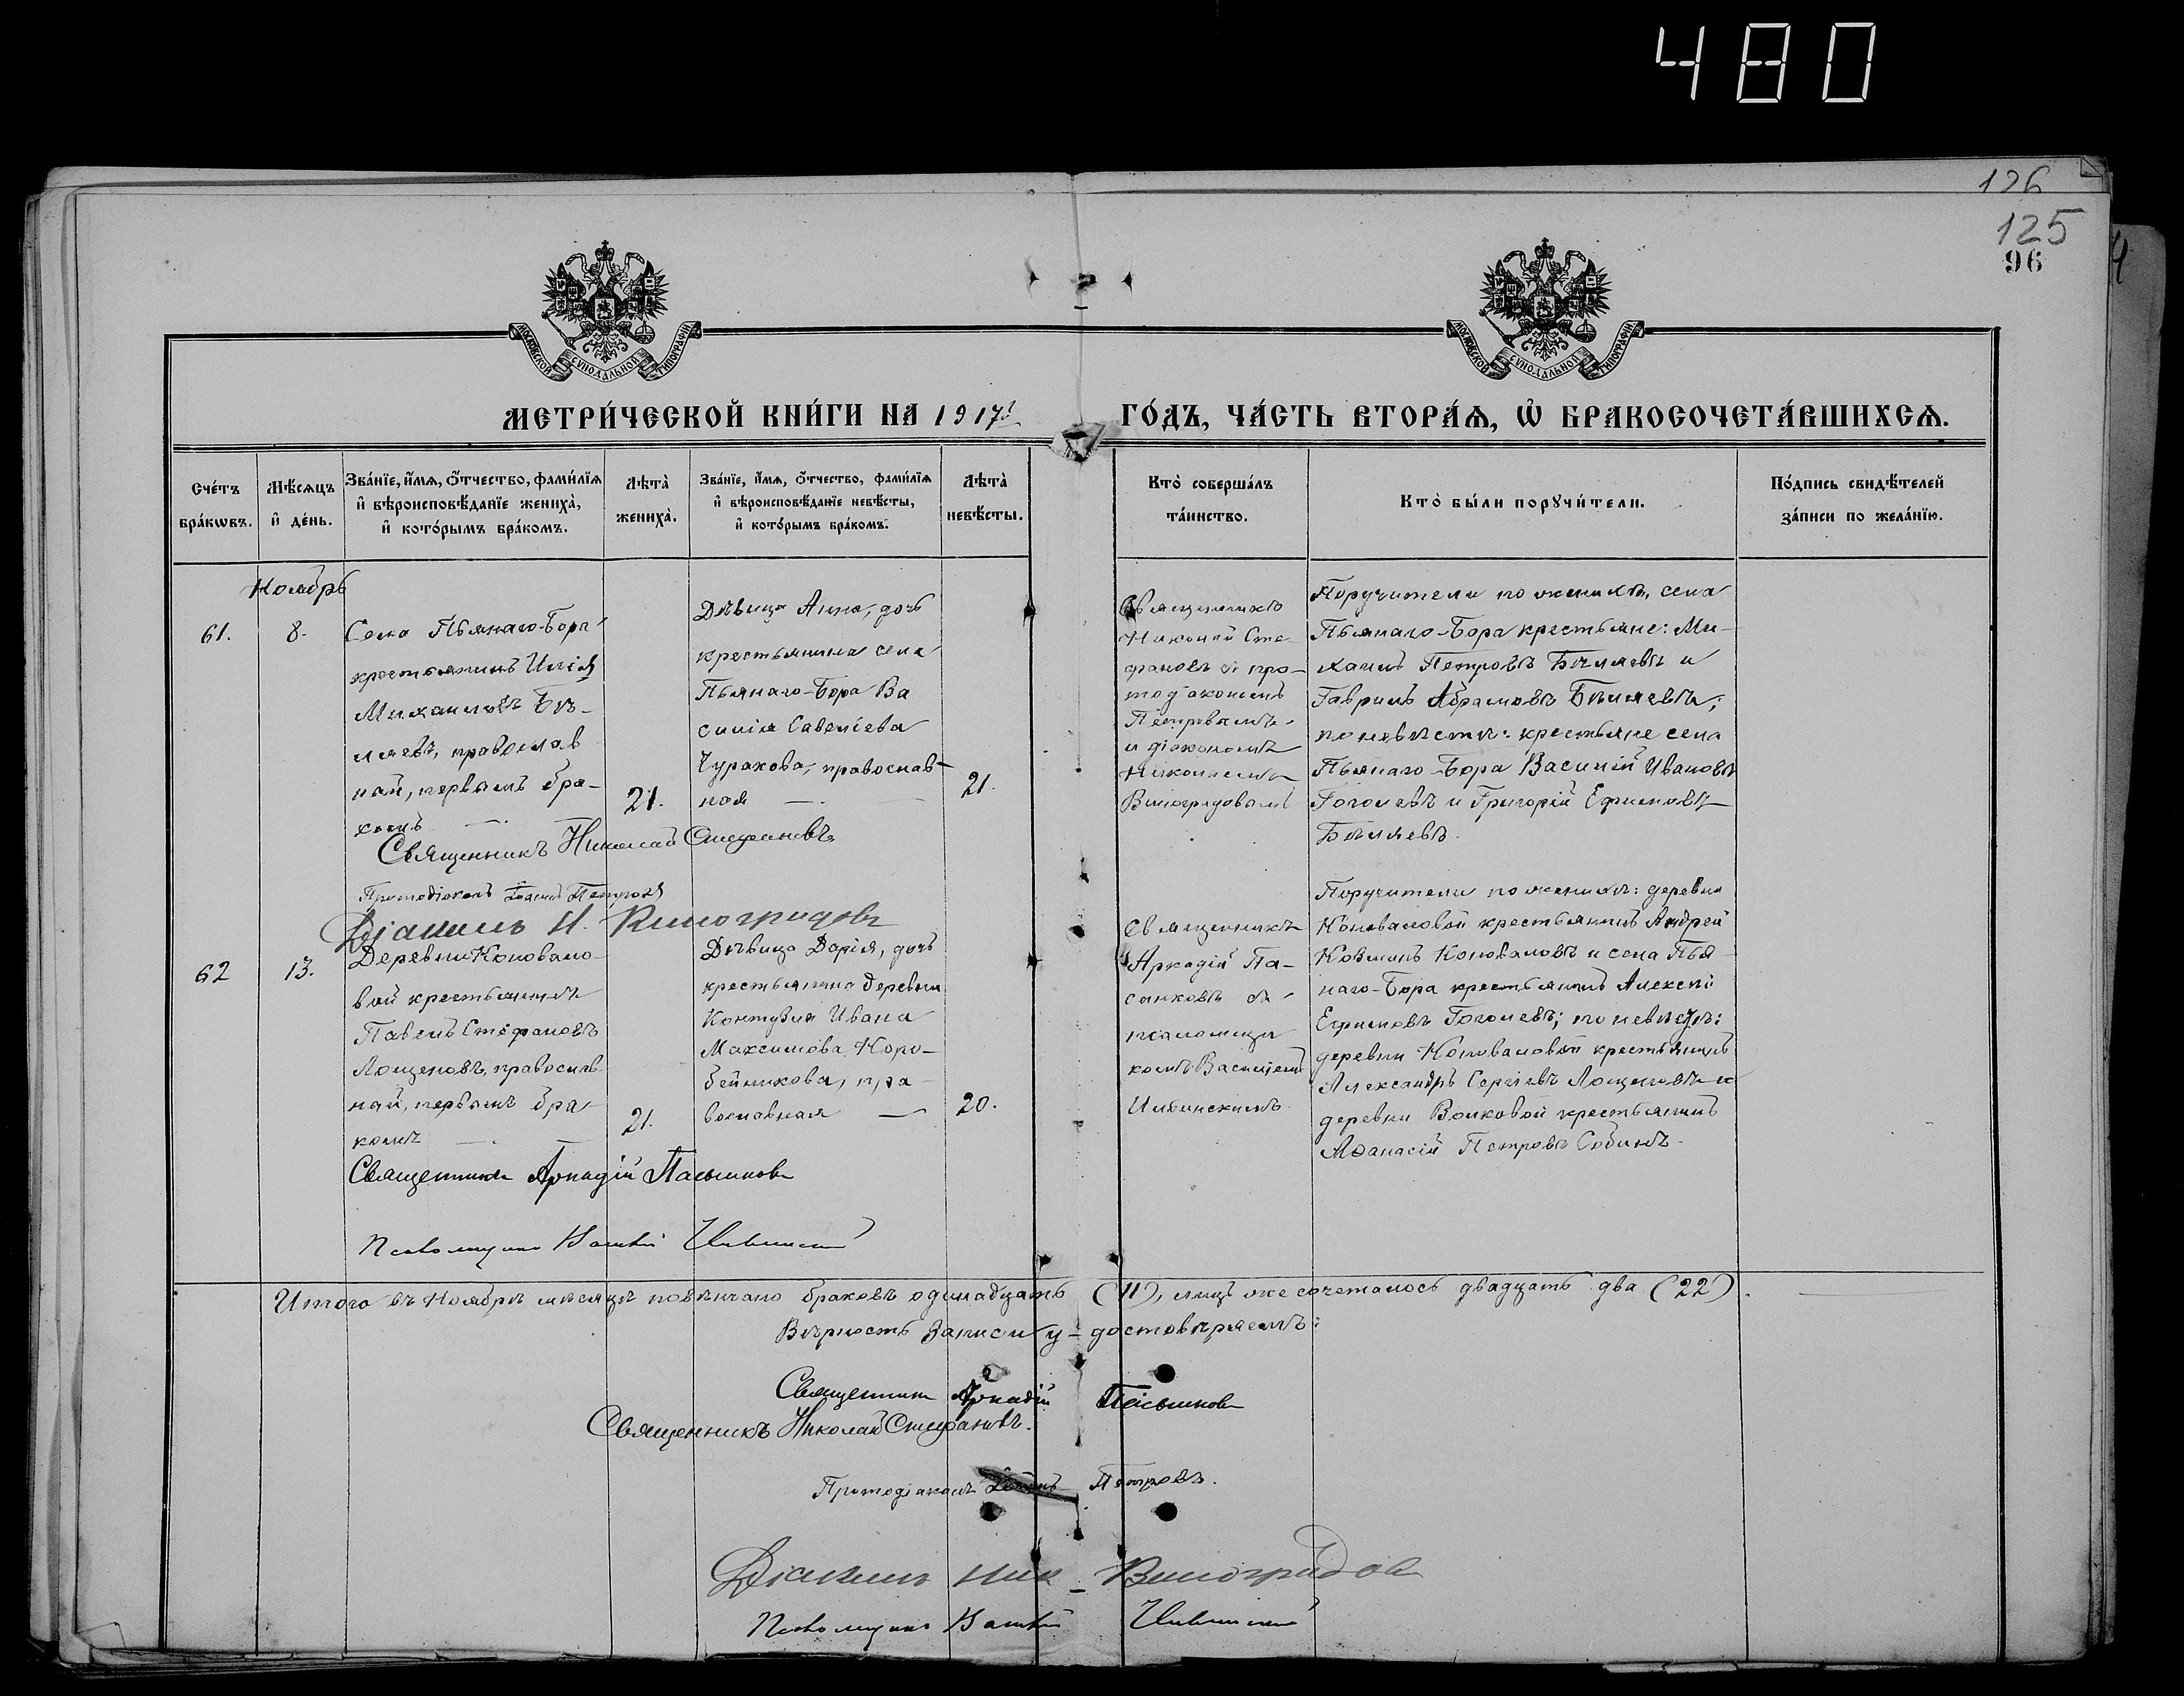 480
126
125
96
МОСКОВСКОЙ СѴНОДАЛЬНОЙ ТИПОГРАФІИ
МОСКОВСКОЙ СѴНОДАЛЬНОЙ ТИПОГРАФІИ
МЕТРИ́ЧЕСКОЙ КНИ́ГИ НА 1917й ГО́ДЪ, ЧА́СТЬ ВТОРА́Ѧ, Ѽ БРАКОСОЧЕТА́ВШИХСѦ.
Сче́тъ бра́кѡвъ.
Мѣ́сѧцъ и҆ де́нь.
Зва́нїе, и҆́мѧ, ѻ҆́тчество, фами́лїѧ
и҆ вѣроисповѣ́данїе жениха̀,
и҆ кото́рымъ бра́комъ.
Лѣта̀ жениха̀.
Зва́нїе, и҆́мѧ, ѻ҆́тчество, фами́лїѧ
и҆ вѣроисповѣ́данїе невѣ́сты,
и҆ кото́рымъ бра́комъ.
Лѣта̀ невѣ́сты.
Кто̀ соверша́лъ та́инство.
Кто̀ бы́ли порꙋчи́тели.
По́дпись свидѣ́телей
за́писи по жела́нїю.
Ноябрь
61.
8.
Села Пьянаго-Бора
крестьянинъ Илія
Михаиловъ Бѣ-
ляевъ, православ
ный, первымъ бра-
комъ —.
21.
Дѣвица Анна, дочь
крестьянина села
Пьянаго-Бора Ва
силія Савельева
Чуракова, православ-
ная —.
21.
Священникъ
Николай Сте
фановъ съ про-
тодіакономъ
Петровымъ
и діакономъ
Николаемъ
Виноградовымъ
Поручители по женихѣ, села
Пьянаго-Бора крестьяне: Ми-
хаилъ Петровъ Бѣляевъ и
Гавріилъ Абрамовъ Бѣляевъ;
по невѣстѣ: крестьяне села
Пьянаго-Бора Василій Ивановъ
Гоголевъ и Григорій Ефимовъ
Бѣляевъ.
Священникъ Николай Стефановъ
Протодіаконъ Іоаннъ Петровъ
Діаконъ Н. Виноградовъ
62
13.
Деревни Коновало-
вой крестьянинъ
Павелъ Стефановъ
Лощеновъ, православ
ный, первымъ бра-
комъ —.
21.
Дѣвица Дарія, дочь
крестьянина деревни
Ивана
Максимова Коро-
бейникова, пра-
вославная —
20.
Священникъ
Аркадій Па-
сынковъ съ
псаломщи
комъ Василіемъ
Ильинскимъ
Поручители по женихѣ: деревни
Коноваловой крестьянинъ Андрей
Козминъ Коноваловъ и села Пья-
наго-Бора крестьянинъ Алексѣй
Ефимовъ Гоголевъ; по невѣстѣ:
деревни Коноваловой крестьянинъ
Александръ Сергіевъ Лощеновъ и
деревни Волковой крестьянинъ
Аѳанасій Петровъ Собинъ.
Священникъ Аркадій Пасынковъ
Псаломщикъ Василій Ильинскій
Итого въ Ноябрѣ мѣсяцѣ повѣнчано браковъ одинадцать (11), лицъ же сочеталось двадцать два (22).
Вѣрность записи удостовѣряемъ:
Священникъ Аркадій Пасынковъ
Священникъ Николай Стефановъ.
Протодіаконъ Іоаннъ Петровъ.
Діаконъ Ник Виноградовъ
Псаломщикъ Василій Ильинскій